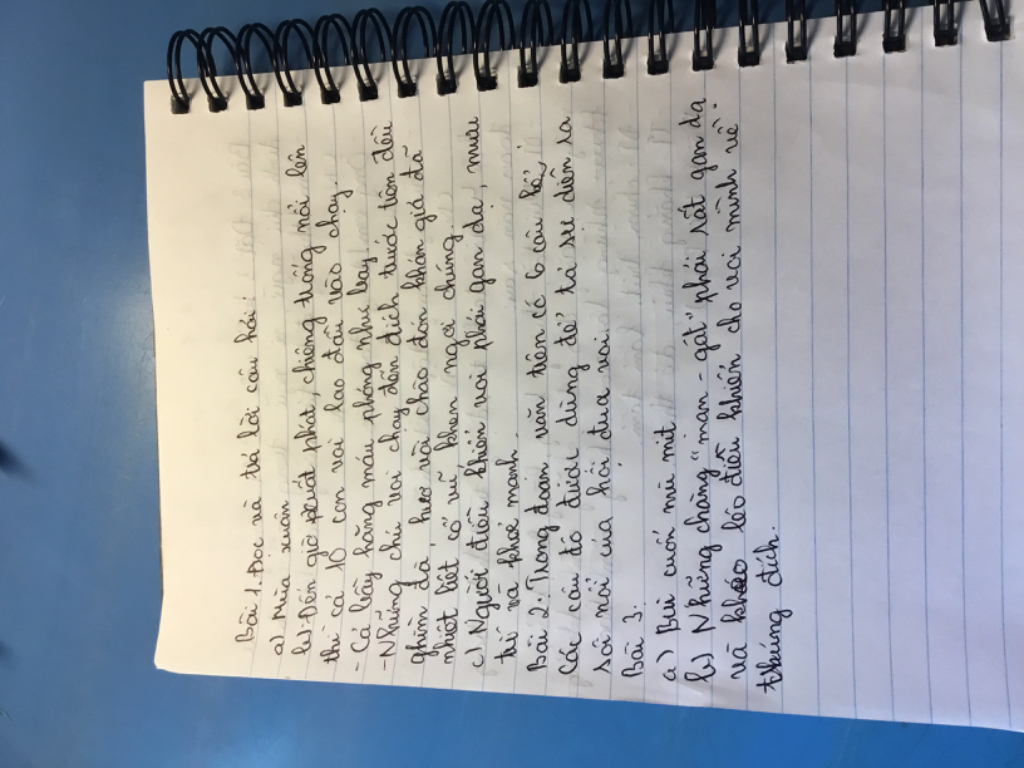 Bài 1. Đọc và trả lời câu hỏi:
a) Mùa xuân
b) - Đến giờ xuất phát, chiêng trống nổi lên
thì cả 10 con voi lao đầu vào chạy.
- Cả bầy hăng máu phóng như bay.
- Những chú voi chạy đến đích trước tiên đều
ghìm đà, huơ vòi chào đón khán giả đã
nhiệt liệt cổ vũ khen ngợi chúng.
c) Người điều khiển voi phải gan dạ, mưu
trí và khoẻ mạnh.
Bài 2. Trong đoạn văn trên có 6 câu kể.
Các câu đó được dùng để tả sự diễn ra
sôi nổi của hội đua voi.
Bài 3.
a) Bụi cuốn mù mịt.
b) Những chàng "man-gát" phải rất gan dạ
và khéo léo điều khiển cho voi mình về
trúng đích.